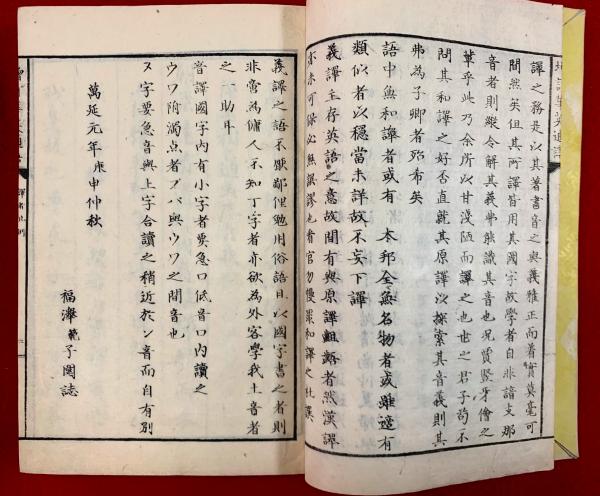 譯之務是以其著書音之與義雅正而着實莫毫可
間然矣但其所譯皆用其國字故學者自非諳支那
音者則縱令解其義弗能識其音也況賈豎牙儈之
輩乎此乃余所以甘淺陋而譯之也世之君子苟不
問其和譯之好否直就其原譯以探索其音義則其
弗為子卿者殆希矣
語中無和譯者或有 本邦全無名物者或雖適有
類似者以穩當未詳故不妄下譯
義譯主存英語之意故間有與原譯齟齬者然漢譯
亦未可保必無誤謬也看官勿慢罪和譯之杜撰
義譯之語不厭鄙俚勉用俗語且以國字書之者則
非啻為傭人不知丁字者亦欲為外客學我土音者
之一助耳
音譯國字內有小字者要急口低音口內讀之
ウワ附濁点者ブバ與ウワ之間音也
ヌ字要急音與上字合讀之稍近於ン音而自有別
萬延元年庚申仲秋
福澤範子圍誌